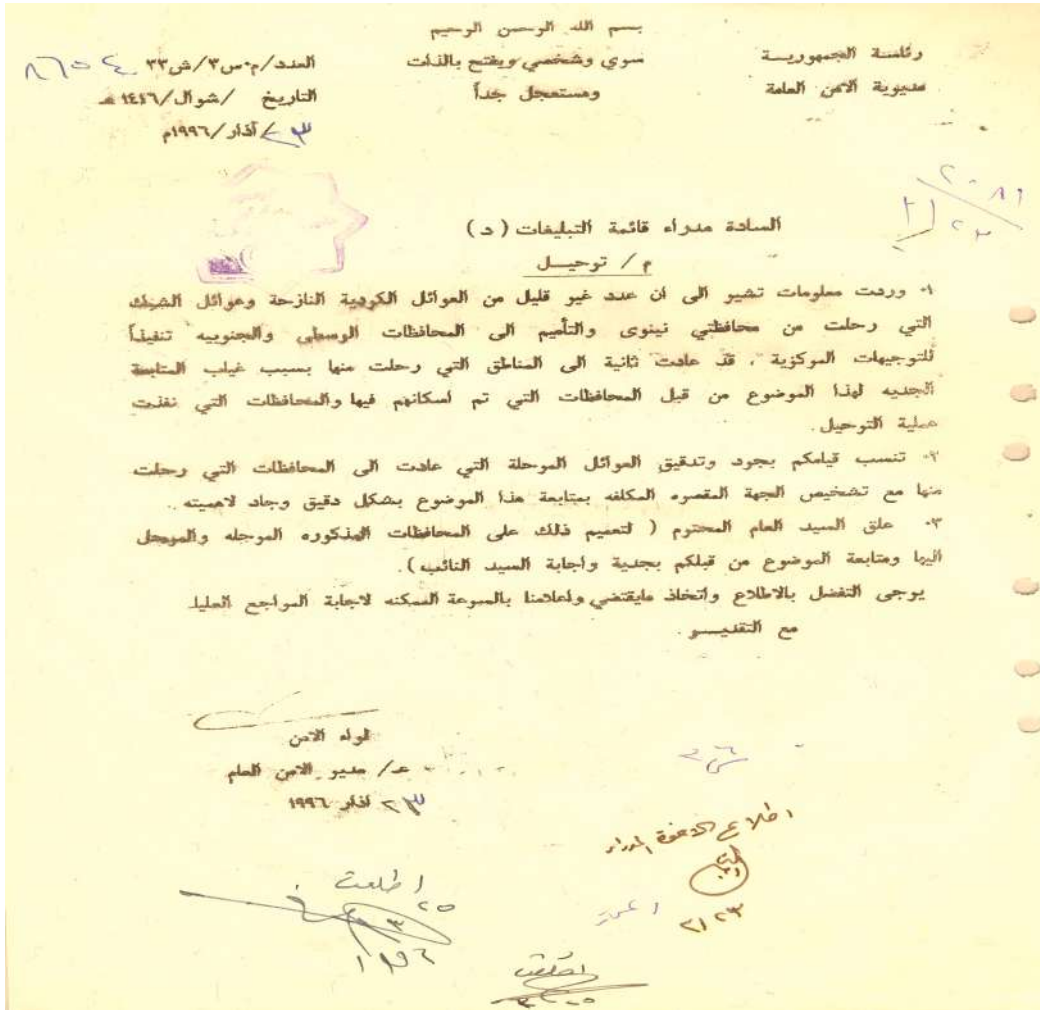 بسم الله الرحمن الرحيم
رئاسة الجمهورية
مديرية الامن العامة
سري وشخصي ويفتح بالذات
ومستعجل جداً
العدد/م.س٣/ش٣٣ ٨٦٥٠٤
التاريخ /شوال/١٤١٦ هـ
٢٣/آذار/١٩٩٦م
السادة مدراء قائمة التبليغات (د)
م/ ترحيـــل
١- وردت معلومات تشير الى ان عدد غير قليل من العوائل الكردية النازحة وعوائل الشبك
التي رحلت من محافظتي نينوى والتأميم الى المحافظات الوسطى والجنوبيه تنفيذاً
للتوجيهات المركزية ، قد عادت ثانية الى المناطق التي رحلت منها بسبب غياب المتابعة
الجديه لهذا الموضوع من قبل المحافظات التي تم اسكانهم فيها والمحافظات التي نفذت
عملية الترحيل.
٢- تنسب قيامكم بجرد وتدقيق العوائل المرحلة التي عادت الى المحافظات التي رحلت
منها مع تشخيص الجهة المقصره المكلفه بمتابعة هذا الموضوع بشكل دقيق وجاد لاهميته.
٣- علق السيد العام المحترم ( لتعميم ذلك على المحافظات المذكوره المرحله والمرحل
اليها ومتابعة الموضوع من قبلكم بجدية واجابة السيد النائب).
يرجى التفضل بالاطلاع واتخاذ مايقتضي واعلامنا بالسرعة الممكنه لاجابة المراجع العليا.
مع التقديـــر.
لواء الامن
عـ/ مدير الامن العام
٢٣ آذار ١٩٩٦
اطلاع الاخوة المدراء
٣/٢٣
اطلعت
٢٥
٣
١٩٩٦
اطلعت
٣/٢٥